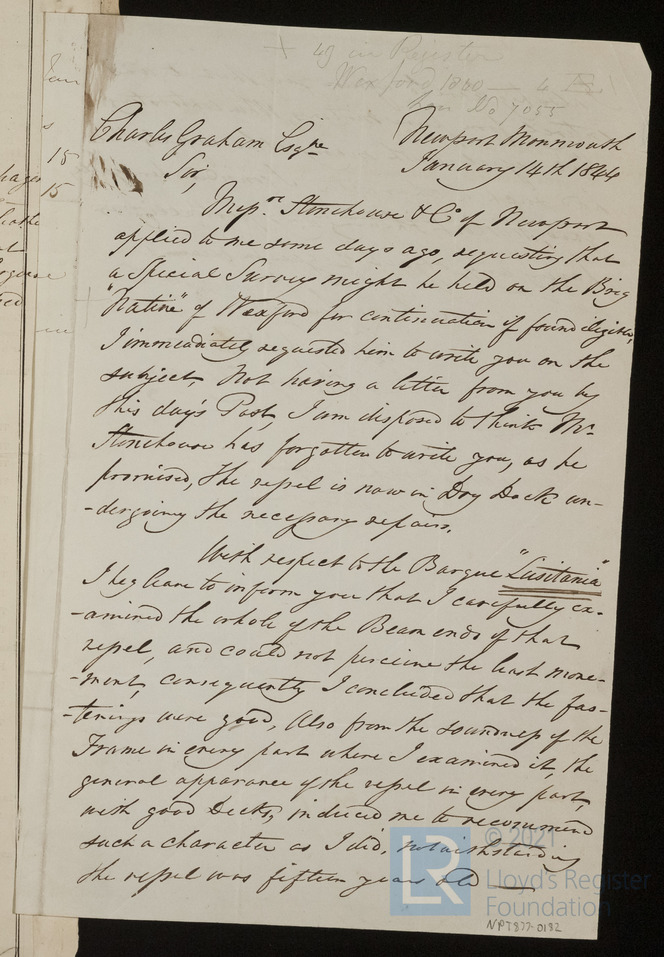 + 49 in Register
Wexford 1840 — 4
No 7055
Charles Graham Esqre
Newport Monmouth
Sir,
January 14th 1844
Messrs. Stonehouse & Co of Newport
applied to me some days ago, requesting that
a Special Survey might be held on the Brig
"Native" of Wexford for continuation if found eligible,
I immediately requested him to write you on the
subject, Not having a letter from you by
this day's Post, I am disposed to think Mr.
Stonehouse has forgotten to write you, as he
promised, the vessel is now in Dry Dock un-
-dergoing the necessary repairs.
With respect to the Barque "Lusitania"
I beg leave to inform you that I carefully ex-
-amined the whole of the Beam ends of that
vessel, and could not perceive the least move-
-ment, consequently I concluded that the fas-
-tenings were good, Also from the soundness of the
Frame in every part where I examined it, the
general apparance of the vessel in every part,
with good Decks, induced me to recommend
such a character as I did, notwithstanding
the vessel was fifteen years old —
LR
© 2021
Lloyd's Register
Foundation
NPT877-0132
15
15